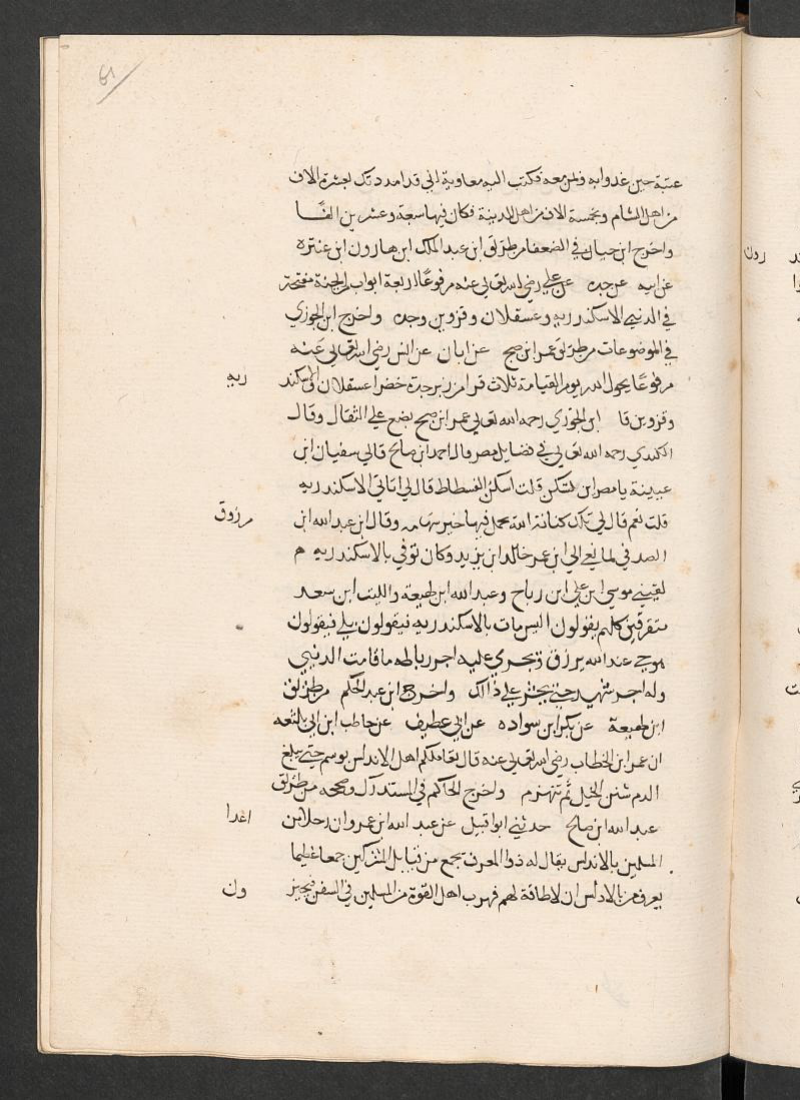 عتبة حين غدوا به ولمن معه فكتب اليه معاوية اني قد امددتك بعشرة الاف
من اهل الشام وبخمسة الاف من اهل المدينة فكان فيها سبعة وعشرين الفًا
واخرج ابن حبان في الضعفا من طريق ابن عبد الملك ابن هارون ابن عنتره
عن ابيه عن جده عن علي رضي الله تعالى عنه مرفوعًا اربعة ابواب الجنة مفتحة
في الدنيي الاسكندريه وعسقلان وقزوين وجده واخرج ابن الجوزي
في الموضوعات من طريق عمر ابن صبح عن ابان عن انس رضي الله تعالى عنه
مرفوعًا يحول الله يوم القيامة ثلاث قرا من زبرجدة خضرا عسقلان والاسكند ريه
وقزوين قا ابن الجوزي رحمه الله تعالى عمر ابن صبح يضع على الثقال وقال
الكندي رحمه الله تعالى في فضايل مصر قال احمد ابن صالح قال لي سفيان ابن
عيينة يا مصر اين تسكن قلت اسكن الفسطاط قال لي اتاتي الاسكندريه
قلت نعم قال لي تلك كنانة الله يجعل فيها خير سهامه وقال ابن عبد الله ابن مرزوق
الصدفي لما نعي الي ابن عمر خالد ابن يزيد وكان توفي بالاسكندريه م
لقيني موسي ابن علي ابن رباح وعبد الله ابن لهيعة والليث ابن سعد
متفرقين كلهم يقولون اليس مات بالاسكندريه فيقولون بلي فيقولون
هو حي عند الله يرزق ويجري عليه اجر رباطه ما قامت الدنيي
وله اجر شهيد حتي يحشر علي ذالك واخرج ابن عبد الحكم من طريق
ابن لهيعة عن بكر ابن سواده عن ابي عطيف عن حاطب ابن ابي بلتعه
ان عمر ابن الخطاب رضي الله تعالى عنه قال يقاتلكم اهل الاندلس بوسيم حتي يبلغ
الدم ثنن الخيل ثم تنهزم واخرج الحاكم في المستدرك وصححه من طريق
عبد الله ابن صالح حدثني ابو اقبيل عن عبد الله ابن عمرو ان رجلا من اعدا
المسلمين بالاندلس يقال له ذو العرف يجمع من قبايل المشركين جمعا عظيما
يعرف من بالاندلس ان لا طاقة لهم فيهرب اهل القوة من المسلمين في السفن فيجيز ون